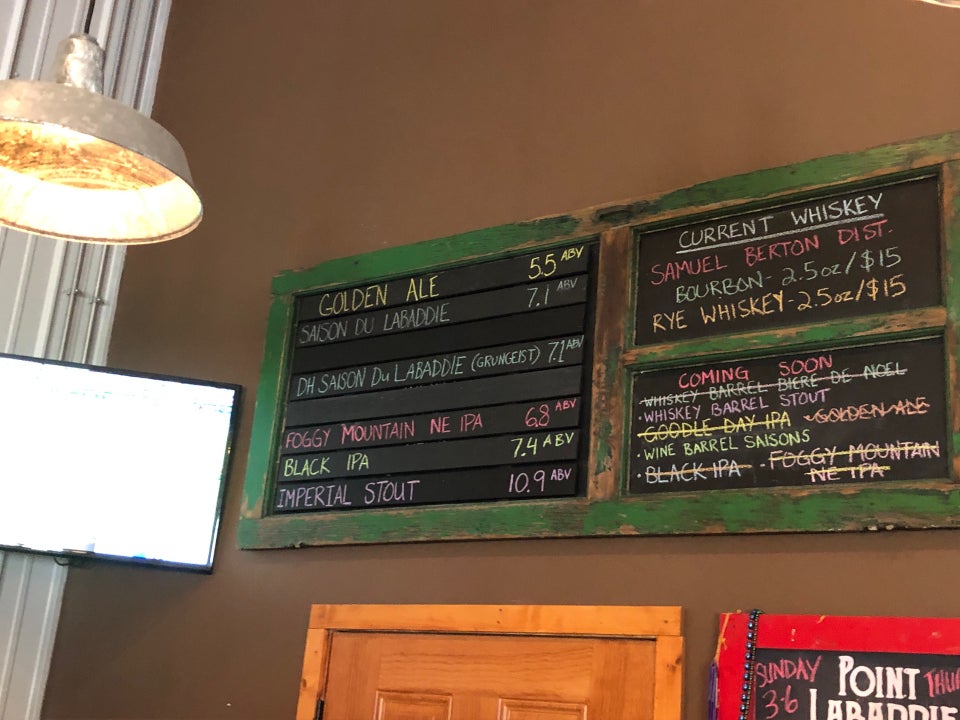 GOLDEN ALE 5.5 ABV
SAISON DU LABADDIE 7.1 ABV
DH SAISON DU LABADDIE (GRUNGEIST) 7.1 ABV
FOGGY MOUNTAIN NE IPA 6.8 ABV
BLACK IPA 7.4 ABV
IMPERIAL STOUT 10.9 ABV
CURRENT WHISKEY
SAMUEL BERTON DIST.
BOURBON - 2.5oz/$15
RYE WHISKEY - 2.5oz/$15
COMING SOON
WHISKEY BARREL BIERE DE NOEL
· WHISKEY BARREL STOUT
· GOODLE DAY IPA · GOLDEN ALE
· WINE BARREL SAISONS
· BLACK IPA · FOGGY MOUNTAIN
NE IPA
SUNDAY
3-6
POINT
LABADDIE